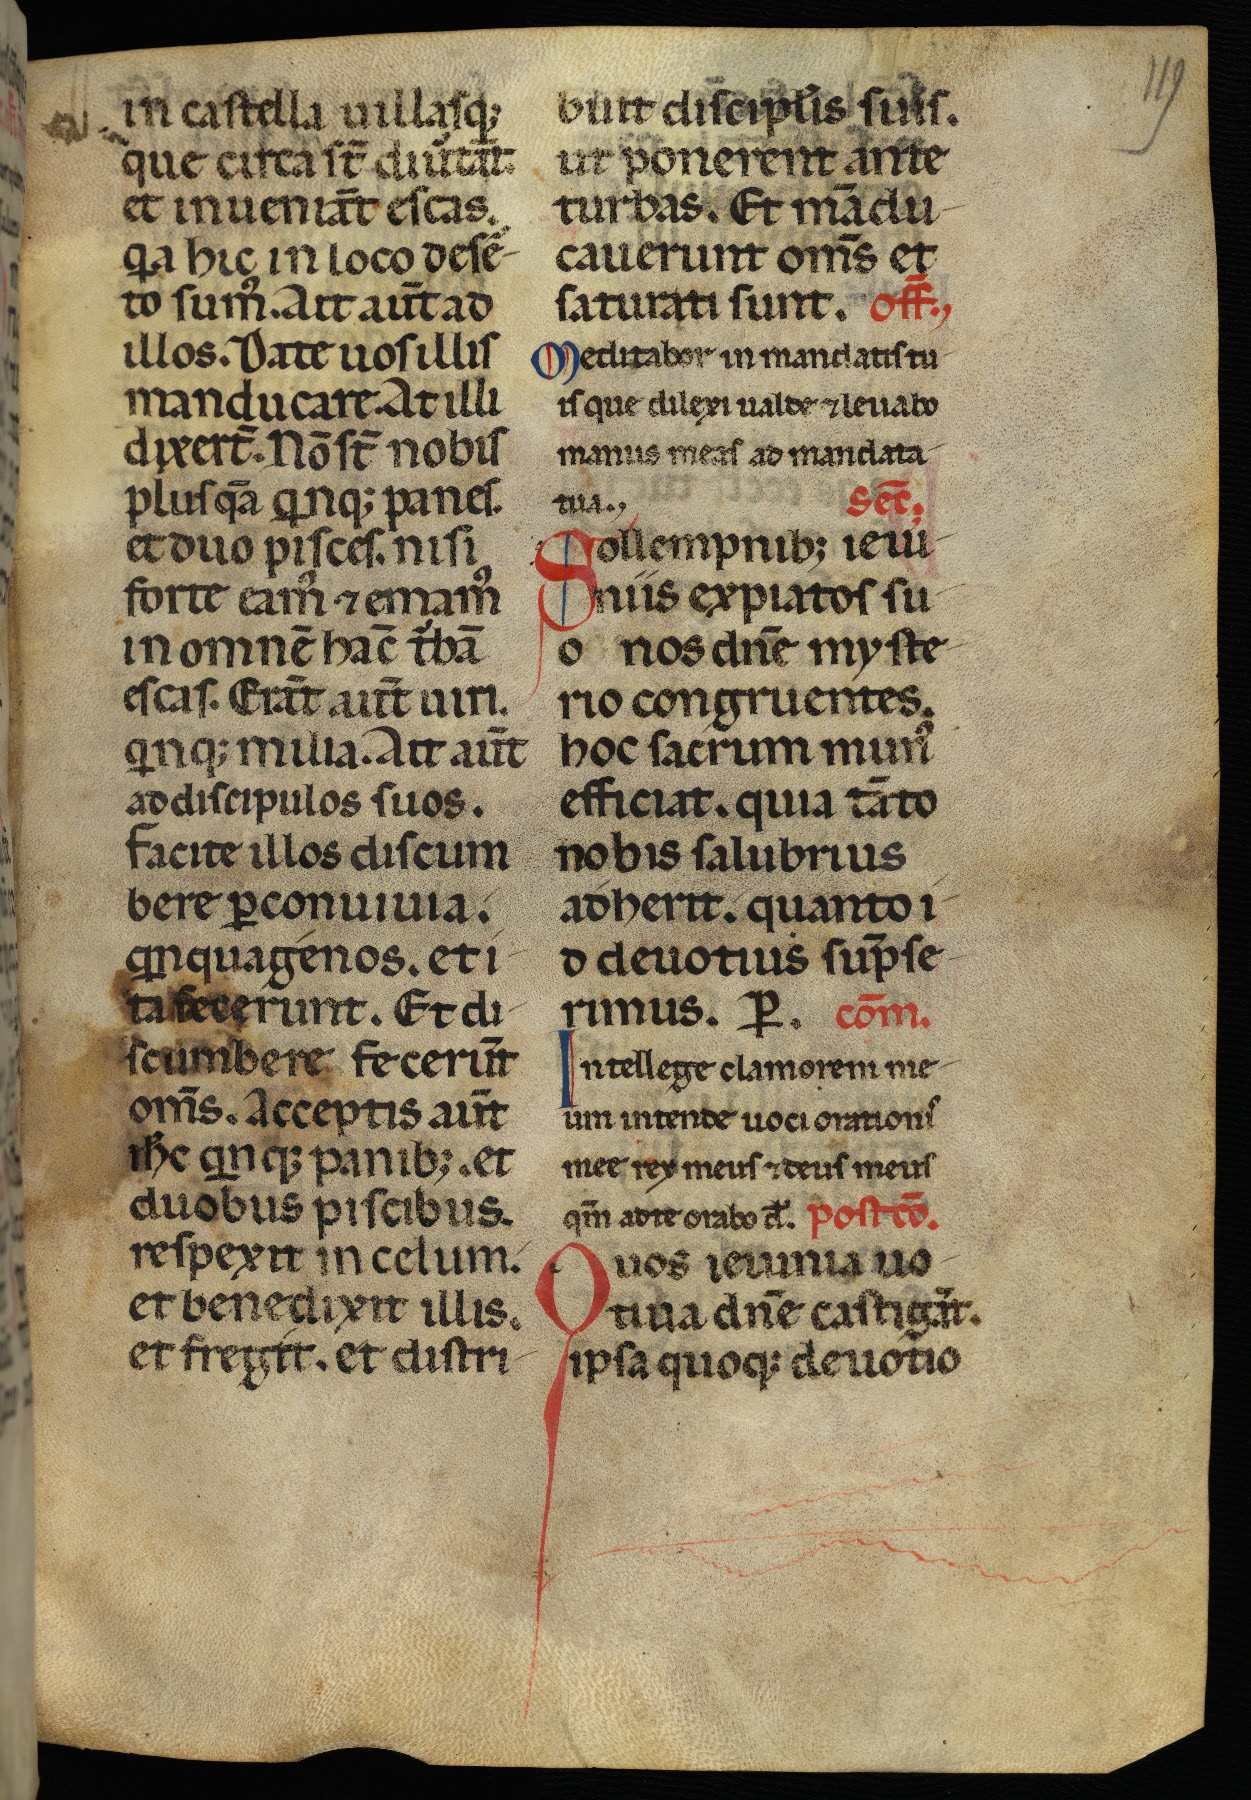 119
in castella uillasq;
que circa st̄ diu̾tāt.
et inueniāt escas.
qa hic in loco dese̾-
to sum᷒. Ait aūt ad
illos. Date uos illis
manducare. At illi
dixert̄. Nō st̄ nobis
plus qā qnq; panes.
et duo pisces. nisi
forte eam᷒ ⁊ emam᷒
in omnē hāc t̾bā
escas. Erāt aūt uiri.
qnq; milia. Ait aūt
ad discipulos suos.
Facite illos discum
bere ꝑ conuiuia.
qnquagenos. et i-
ta fecerunt. Et di-
scumbere fecerūt
om̄s. Acceptis aūt
ih̄c qnq; panib;. et
duobus piscibus.
respexit in celum.
et benedixit illis.
et fregit. et distri-
buit discipl̄is suis.
ut ponerent ante
turbas. Et mādu-
cauerunt om̄s et
saturati sunt. Off̄.,
Meditabor in mandatis tu-
is que dilexi ualde ⁊ leuabo
manus meas ad mandata-
tua., Sēc.
Sollempnib; ieiu-
niis expiatos su-
o nos dn̄e myste-
rio congruentes.
hoc sacrum mun᷒
efficiat. quia tāto
nobis salubrius
adherit. quanto i-
d deuotius sūpse-
rimus. P. cōm.
Intellege clamorem me-
um intende uoci orationis
mee rex meus ⁊ deus meus
qm̄ ad te orabo d̄. post cō.
Quos ieiunia uo-
tiua dn̄e castigāt.
ipsa quoq; deuotio